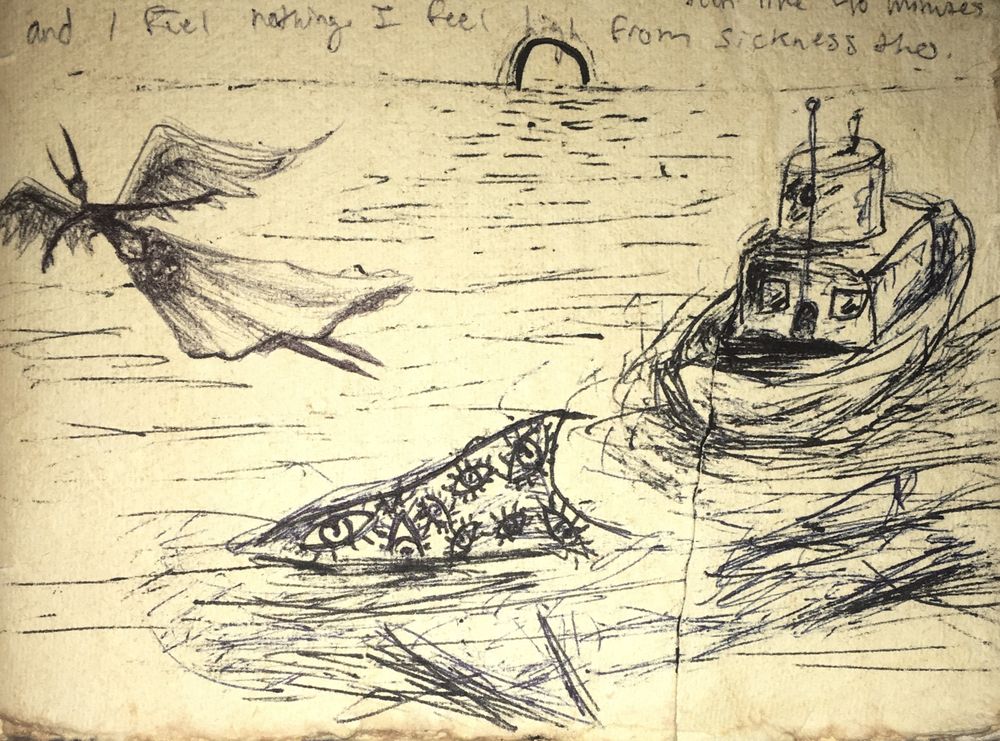 like 40 minutes
and I Feel nothing I feel high From sickness tho.